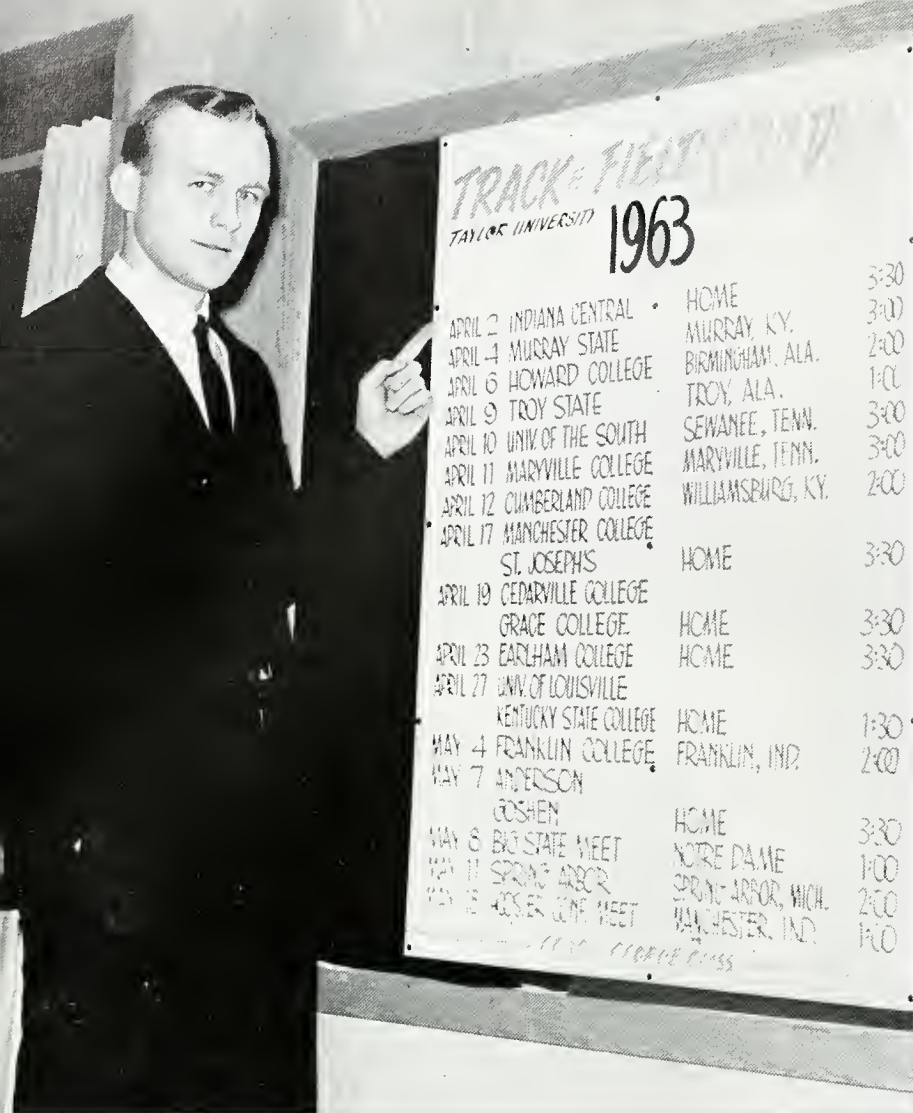 TRACK & FIELD
TAYLOR UNIVERSITY 1963
APRIL 2 INDIANA CENTRAL HOME 3:30
APRIL 4 MURRAY STATE MURRAY, KY. 3:00
APRIL 6 HOWARD COLLEGE BIRMINGHAM, ALA. 2:00
APRIL 9 TROY STATE TROY, ALA. 1:00
APRIL 10 UNIV OF THE SOUTH SEWANEE, TENN. 3:00
APRIL 11 MARYVILLE COLLEGE MARYVILLE, TENN. 3:00
APRIL 12 CUMBERLAND COLLEGE WILLIAMSBURG, KY. 2:00
APRIL 17 MANCHESTER COLLEGE
ST. JOSEPH'S HOME 3:30
APRIL 19 CEDARVILLE COLLEGE
GRACE COLLEGE HOME 3:30
APRIL 23 EARLHAM COLLEGE HOME 3:30
APRIL 27 UNIV. OF LOUISVILLE
KENTUCKY STATE COLLEGE HOME 1:30
MAY 4 FRANKLIN COLLEGE FRANKLIN, IND. 2:00
MAY 7 ANDERSON
GOSHEN HOME 3:30
MAY 8 BIG STATE MEET NOTRE DAME 1:00
MAY 11 SPRING ARBOR SPRING ARBOR, MICH. 2:00
MAY HOOSIER CONF. MEET MANCHESTER, IND. 1:00
GEORGE GLASS